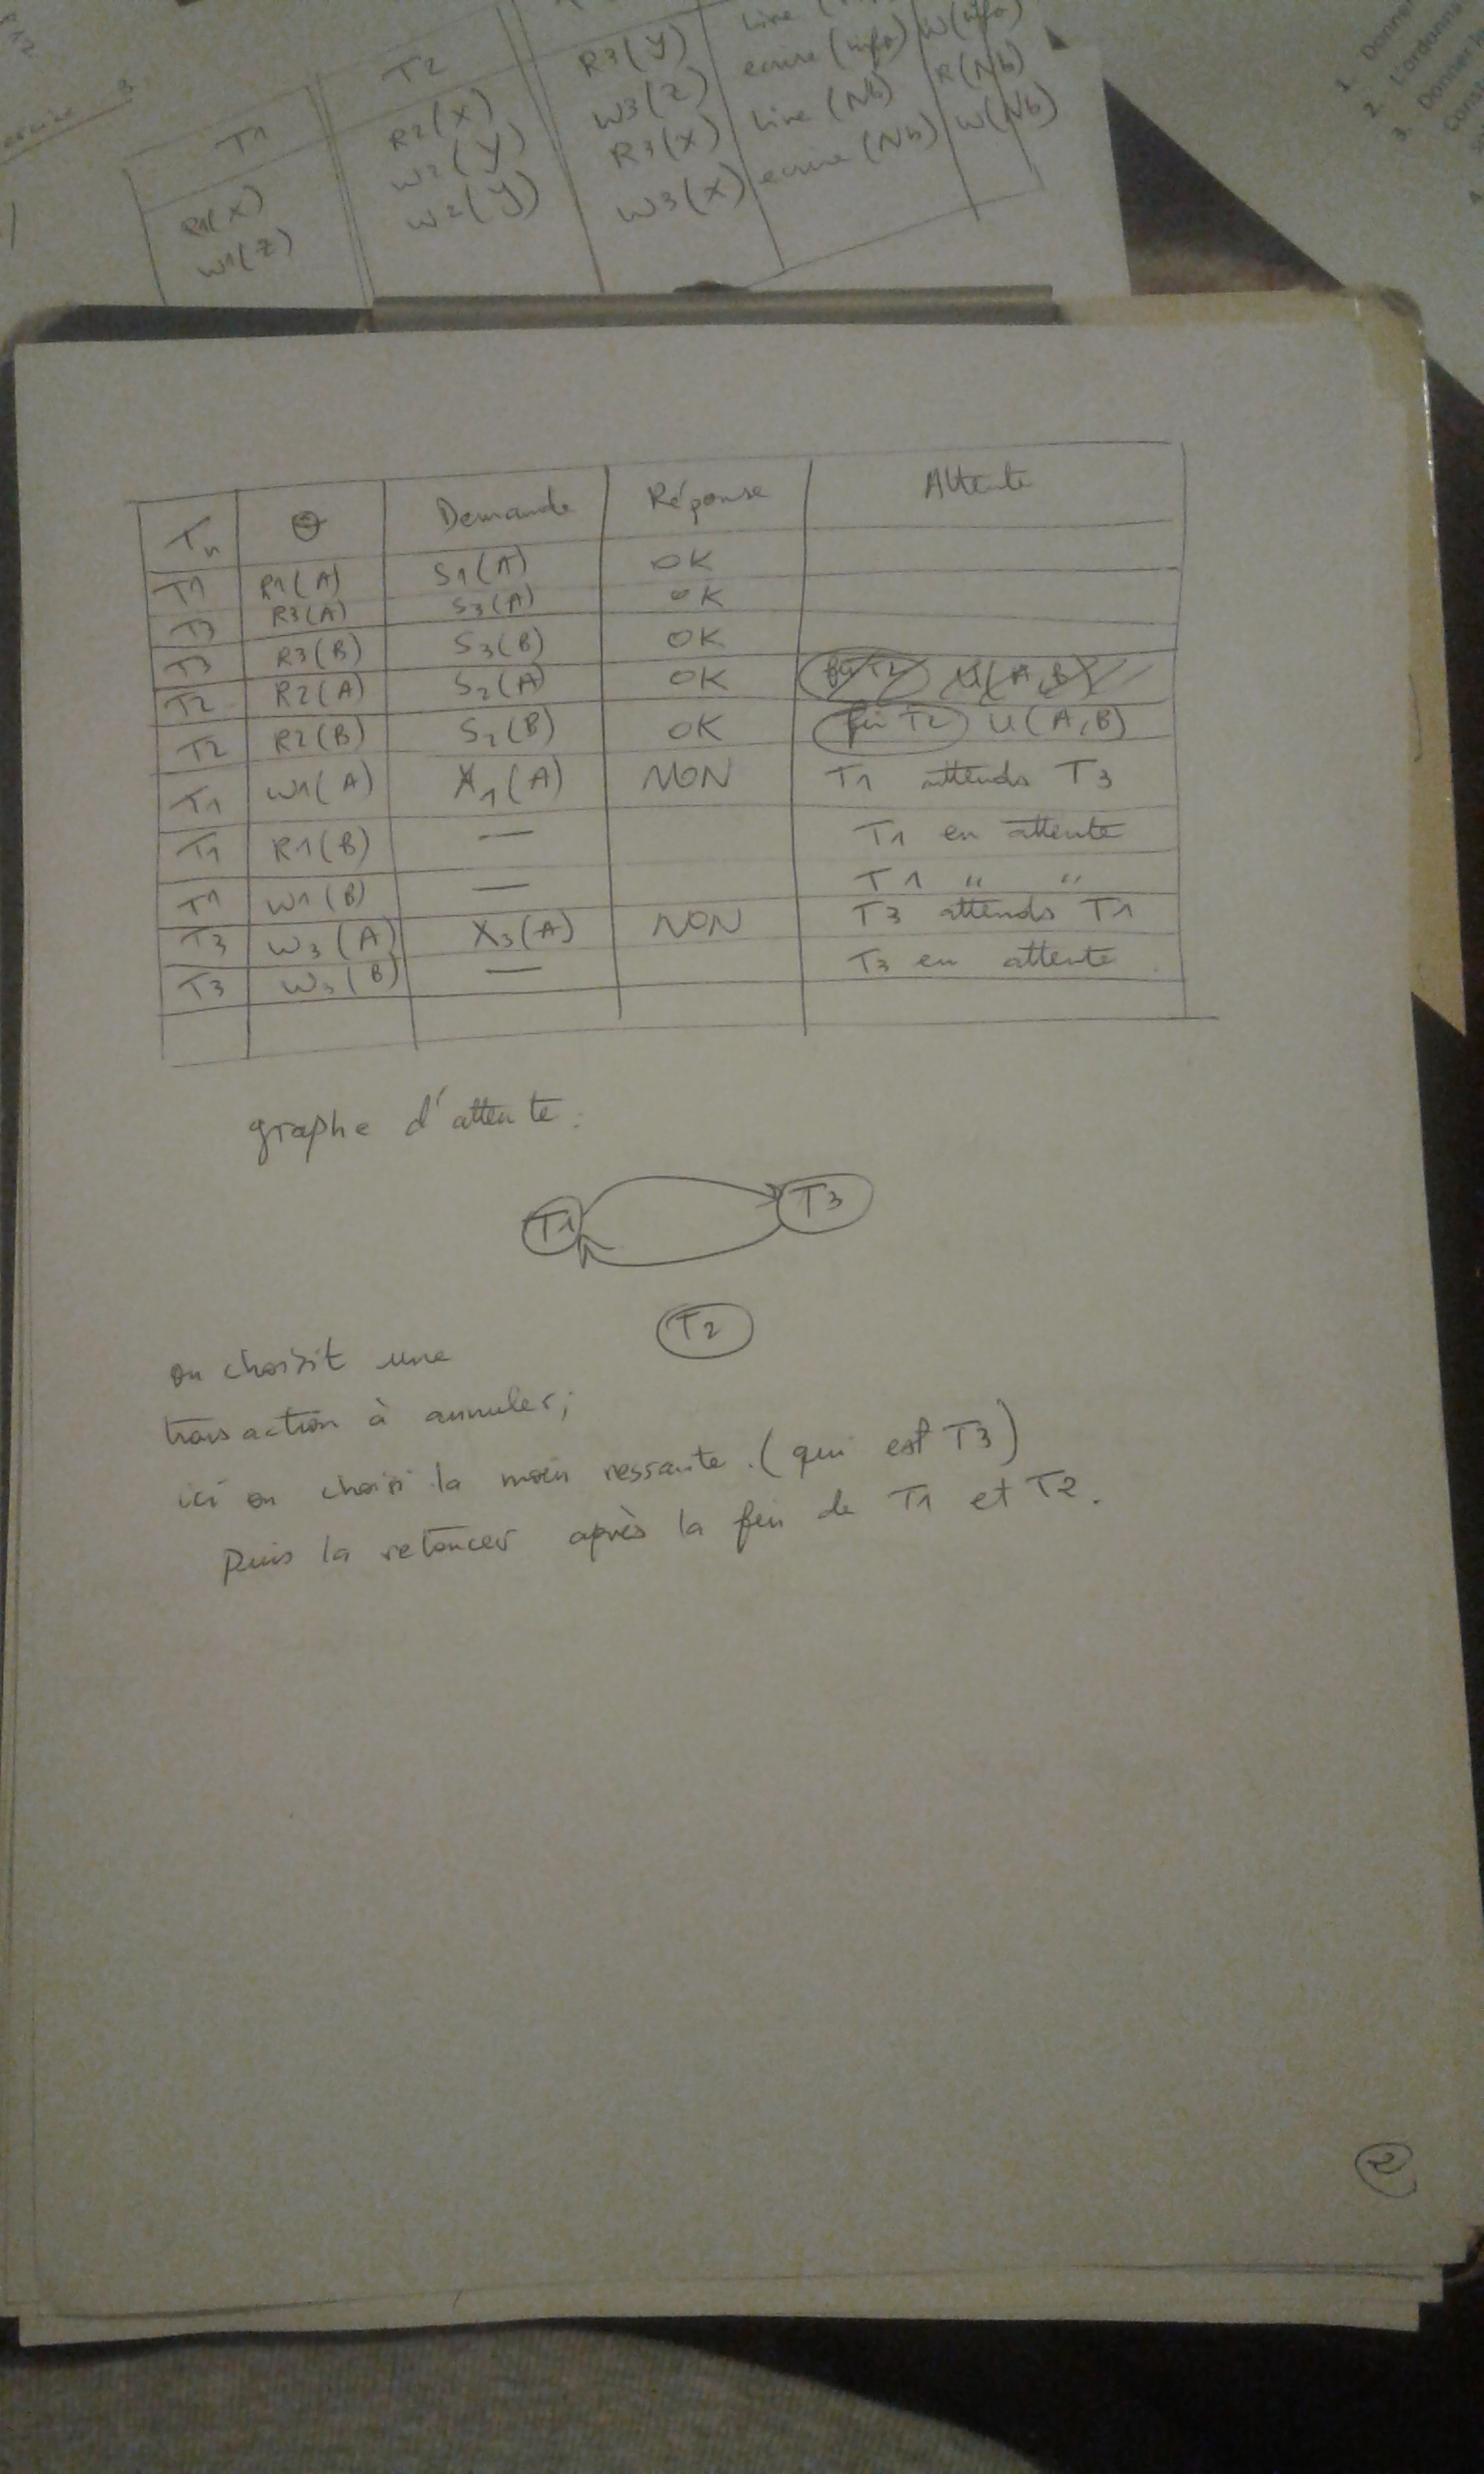 T1
T2
R1(X)
W1(Z)
R2(X)
W2(Y)
W2(Y)
R3(Y)
W3(Z)
R3(X)
W3(X)
Lire
ecrire (info) W(info)
Lire (Nb) R(Nb)
ecrire (Nb) W(Nb)
1. Donner
2. L'ordonna
3. Donner
Tn Θ Demande Réponse Attente
T1 R1(A) S1(A) OK
T3 R3(A) S3(A) OK
T3 R3(B) S3(B) OK
T2 R2(A) S2(A) OK fin T2 U(A,B)
T2 R2(B) S2(B) OK fin T2 U(A,B)
T1 W1(A) X1(A) NON T1 attends T3
T1 R1(B) — T1 en attente
T1 W1(B) — T1 " "
T3 W3(A) X3(A) NON T3 attends T1
T3 W3(B) — T3 en attente
graphe d'attente :
T1 T3
T2
on choisit une
transaction à annuler;
ici on choisi la moin ressante. (qui est T3)
Puis la relancer après la fin de T1 et T2.
2